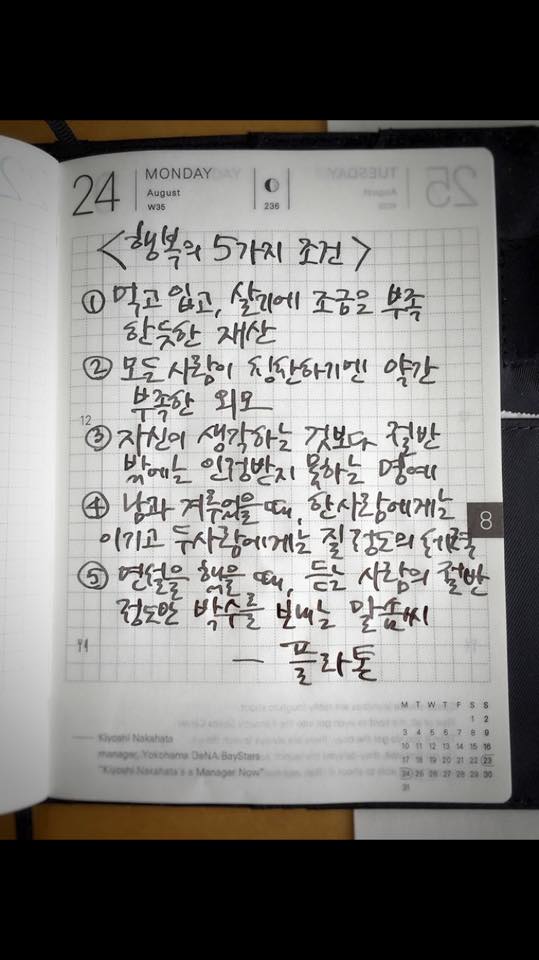 24
MONDAY
August
W35
236
TUESDAY
August
25
<행복의 5가지 조건>
① 먹고 입고, 살기에 조금은 부족
한듯한 재산
② 모든 사람이 칭찬하기엔 약간
부족한 외모
12
③ 자신이 생각하는 것보다 절반
밖에는 인정받지 못하는 명예
④ 남과 겨루었을 때, 한사람에게는
8
이기고 두사람에게는 질 정도의 체력
⑤ 연설을 했을 때, 듣는 사람의 절반
정도만 박수를 보내는 말솜씨
— 플라톤
Kiyoshi Nakahata
manager, Yokohama DeNA BayStars
"Kiyoshi Nakahata's a Manager Now"
M T W T F S S
1 2
3 4 5 6 7 8 9
10 11 12 13 14 15 16
17 18 19 20 21 22 23
24 25 26 27 28 29 30
31